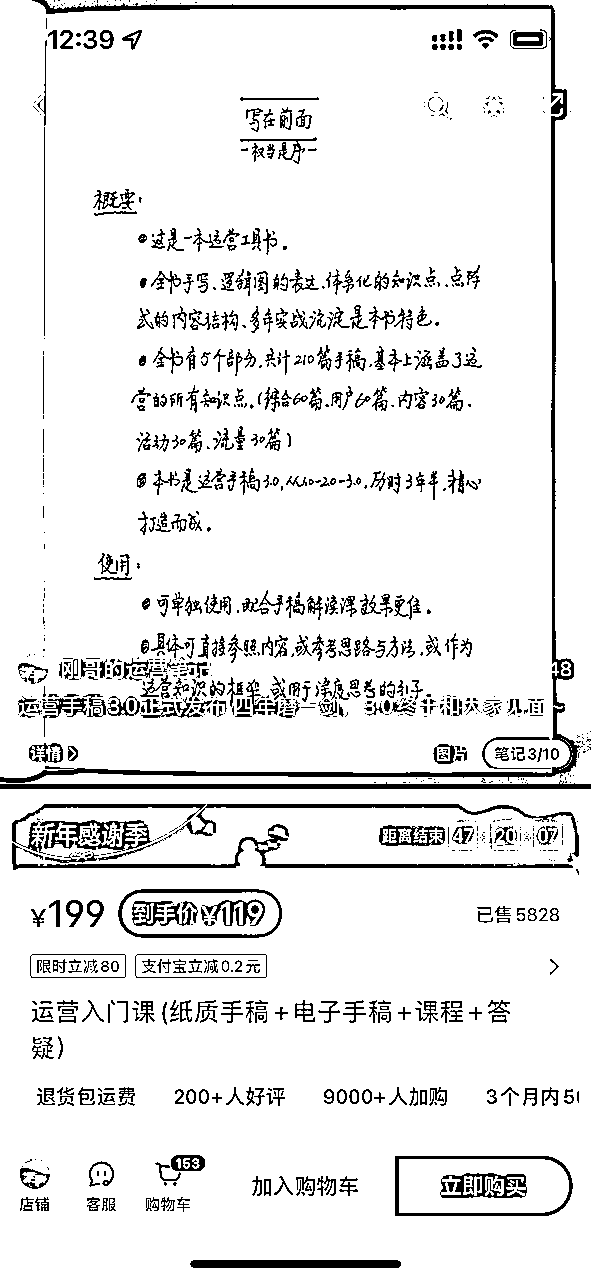 12:39
写在前面
-权当是序-
概要:
这是一本运营工具书。
全书手写、逻辑图的表达、体系化的知识点、点阵
式的内容结构、多年实战沉淀是本书特色。
全书有5个部分,共计210篇手稿,基本上涵盖了运
营的所有知识点。(综合60篇、用户60篇、内容30篇、
活动30篇、流量30篇)
本书是运营手稿3.0,从1.0-2.0-3.0,历时3年半,精心
打造而成。
使用:
可单独使用,配合手稿解读课效果更佳。
具体可直接参照内容,或参考思路与方法,或作为
运营知识的框架,或用于深度思考的引子。
刚哥的运营笔记
运营手稿3.0正式发布 四年磨一剑,3.0终于和大家见面~
详情
图片 笔记3/10
新年感谢季
距离结束 47:20:07
¥199 到手价¥119
已售5828
限时立减80 支付宝立减0.2元
运营入门课(纸质手稿+电子手稿+课程+答
疑)
退货包运费 200+人好评 9000+人加购 3个月内
153
店铺 客服 购物车 加入购物车 立即购买